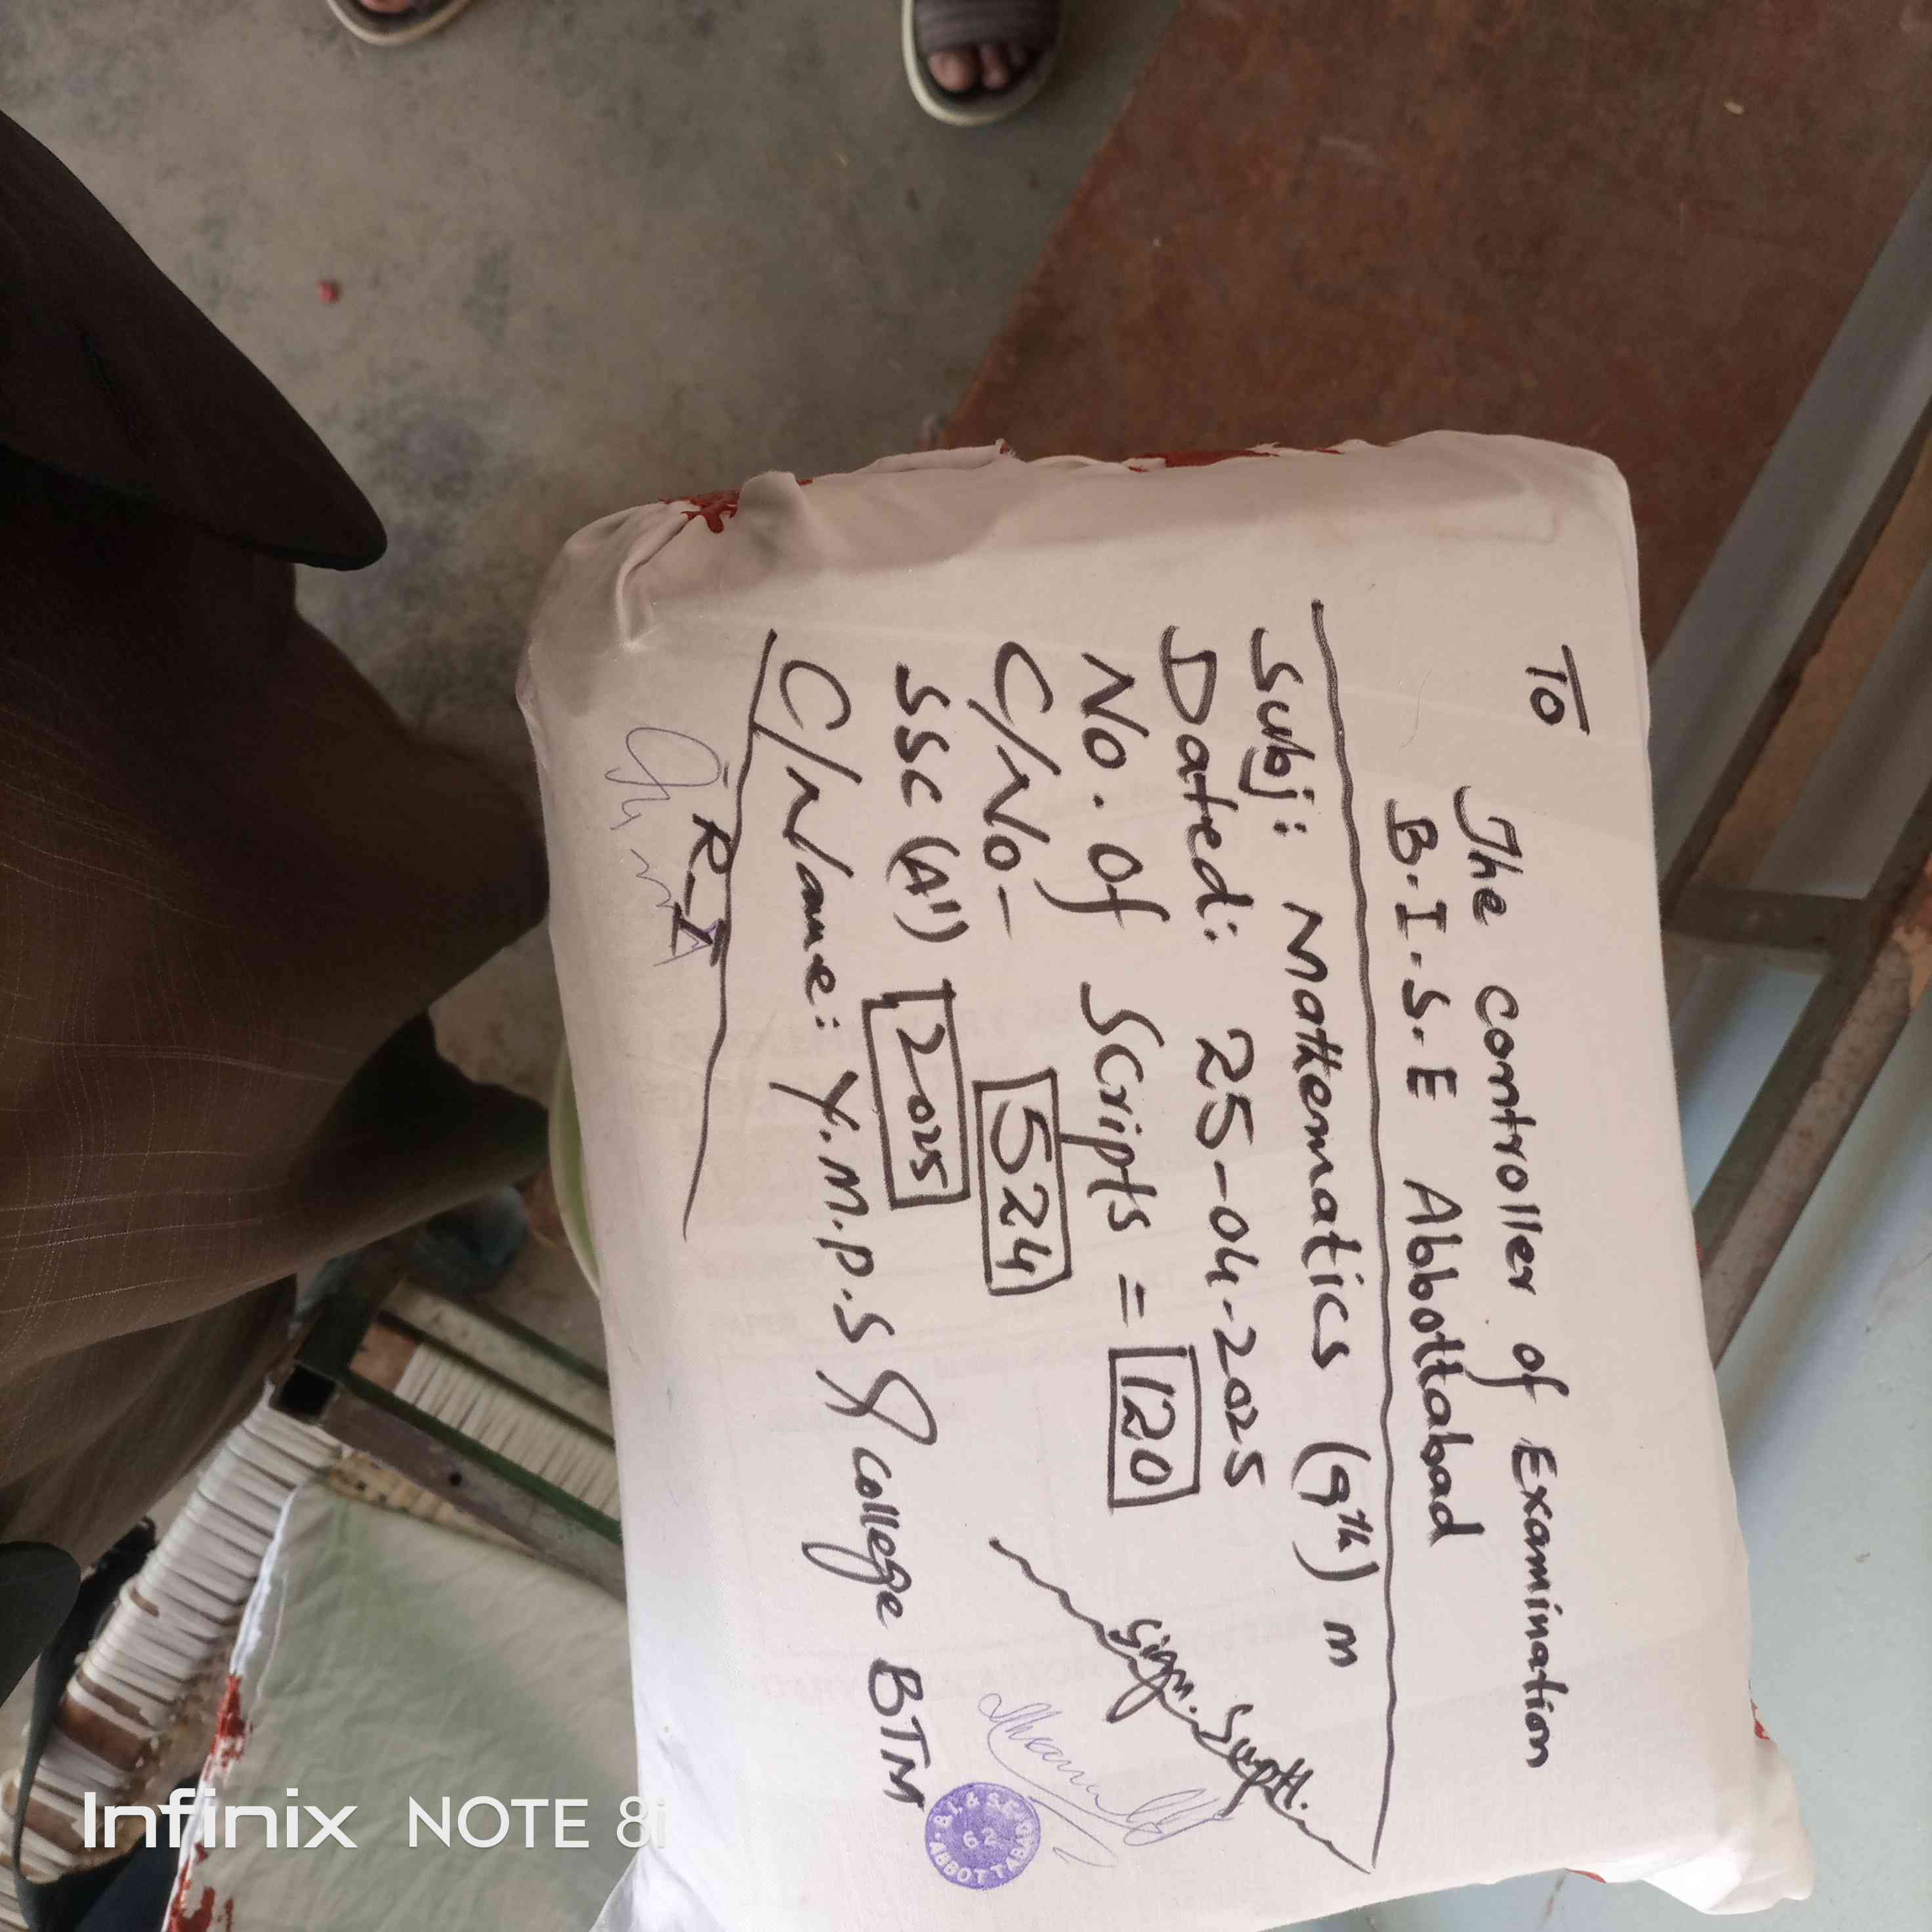 To
The Controller of Examination
B.I.S.E Abbottabad
Subj: Mathematics (9th) m
Dated: 25-04-2025
No. of Scripts = 120
C/No- 524
SSC (A') 2025
C/Name: Y.M.P.S & College BTM
R-I
Sign. Suptt.
B.I. & S.E.
62
ABBOTTABAD
Infinix NOTE 8i